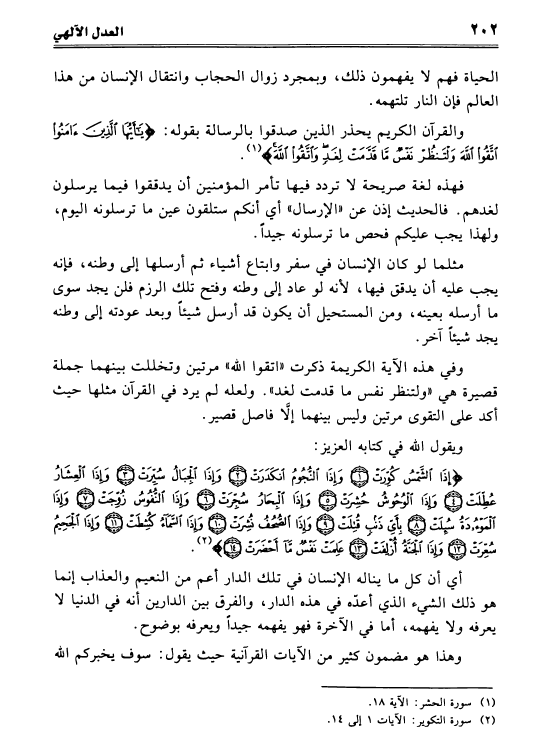 ٢٠٢ العدل الآلهي
الحياة فهم لا يفهمون ذلك، وبمجرد زوال الحجاب وانتقال الإنسان من هذا
العالم فإن النار تلتهمه.
والقرآن الكريم يحذر الذين صدقوا بالرسالة بقوله: ﴿يَٰٓأَيُّهَا ٱلَّذِينَ ءَامَنُوا۟
ٱتَّقُوا۟ ٱللَّهَ وَلْتَنظُرْ نَفْسٌ مَّا قَدَّمَتْ لِغَدٍ وَٱتَّقُوا۟ ٱللَّهَ﴾(١).
فهذه لغة صريحة لا تردد فيها تأمر المؤمنين أن يدققوا فيما يرسلون
لغدهم. فالحديث إذن عن «الإرسال» أي أنكم ستلقون عين ما ترسلونه اليوم،
ولهذا يجب عليكم فحص ما ترسلونه جيداً.
مثلما لو كان الإنسان في سفر وابتاع أشياء ثم أرسلها إلى وطنه، فإنه
يجب عليه أن يدقق فيها، لأنه لو عاد إلى وطنه وفتح تلك الرزم فلن يجد سوى
ما أرسله بعينه، ومن المستحيل أن يكون قد أرسل شيئاً وبعد عودته إلى وطنه
يجد شيئاً آخر.
وفي هذه الآية الكريمة ذكرت «اتقوا الله» مرتين وتخللت بينهما جملة
قصيرة هي «ولتنظر نفس ما قدمت لغد». ولعله لم يرد في القرآن مثلها حيث
أكد على التقوى مرتين وليس بينهما إلَّا فاصل قصير.
ويقول الله في كتابه العزيز:
﴿إِذَا ٱلشَّمْسُ كُوِّرَتْ ١ وَإِذَا ٱلنُّجُومُ ٱنكَدَرَتْ ٢ وَإِذَا ٱلْجِبَالُ سُيِّرَتْ ٣ وَإِذَا ٱلْعِشَارُ
عُطِّلَتْ ٤ وَإِذَا ٱلْوُحُوشُ حُشِرَتْ ٥ وَإِذَا ٱلْبِحَارُ سُجِّرَتْ ٦ وَإِذَا ٱلنُّفُوسُ زُوِّجَتْ ٧ وَإِذَا
ٱلْمَوْءُۥدَةُ سُئِلَتْ ٨ بِأَيِّ ذَنۢبٍ قُتِلَتْ ٩ وَإِذَا ٱلصُّحُفُ نُشِرَتْ ١٠ وَإِذَا ٱلسَّمَآءُ كُشِطَتْ ١١ وَإِذَا ٱلْجَحِيمُ
سُعِّرَتْ ١٢ وَإِذَا ٱلْجَنَّةُ أُزْلِفَتْ ١٣ عَلِمَتْ نَفْسٌ مَّآ أَحْضَرَتْ ١٤﴾(٢).
أي أن كل ما يناله الإنسان في تلك الدار أعم من النعيم والعذاب إنما
هو ذلك الشيء الذي أعدّه في هذه الدار، والفرق بين الدارين أنه في الدنيا لا
يعرفه ولا يفهمه، أما في الآخرة فهو يفهمه جيداً ويعرفه بوضوح.
وهذا هو مضمون كثير من الآيات القرآنية حيث يقول: سوف يخبركم الله
(١) سورة الحشر: الآية ١٨.
(٢) سورة التكوير: الآيات ١ إلى ١٤.